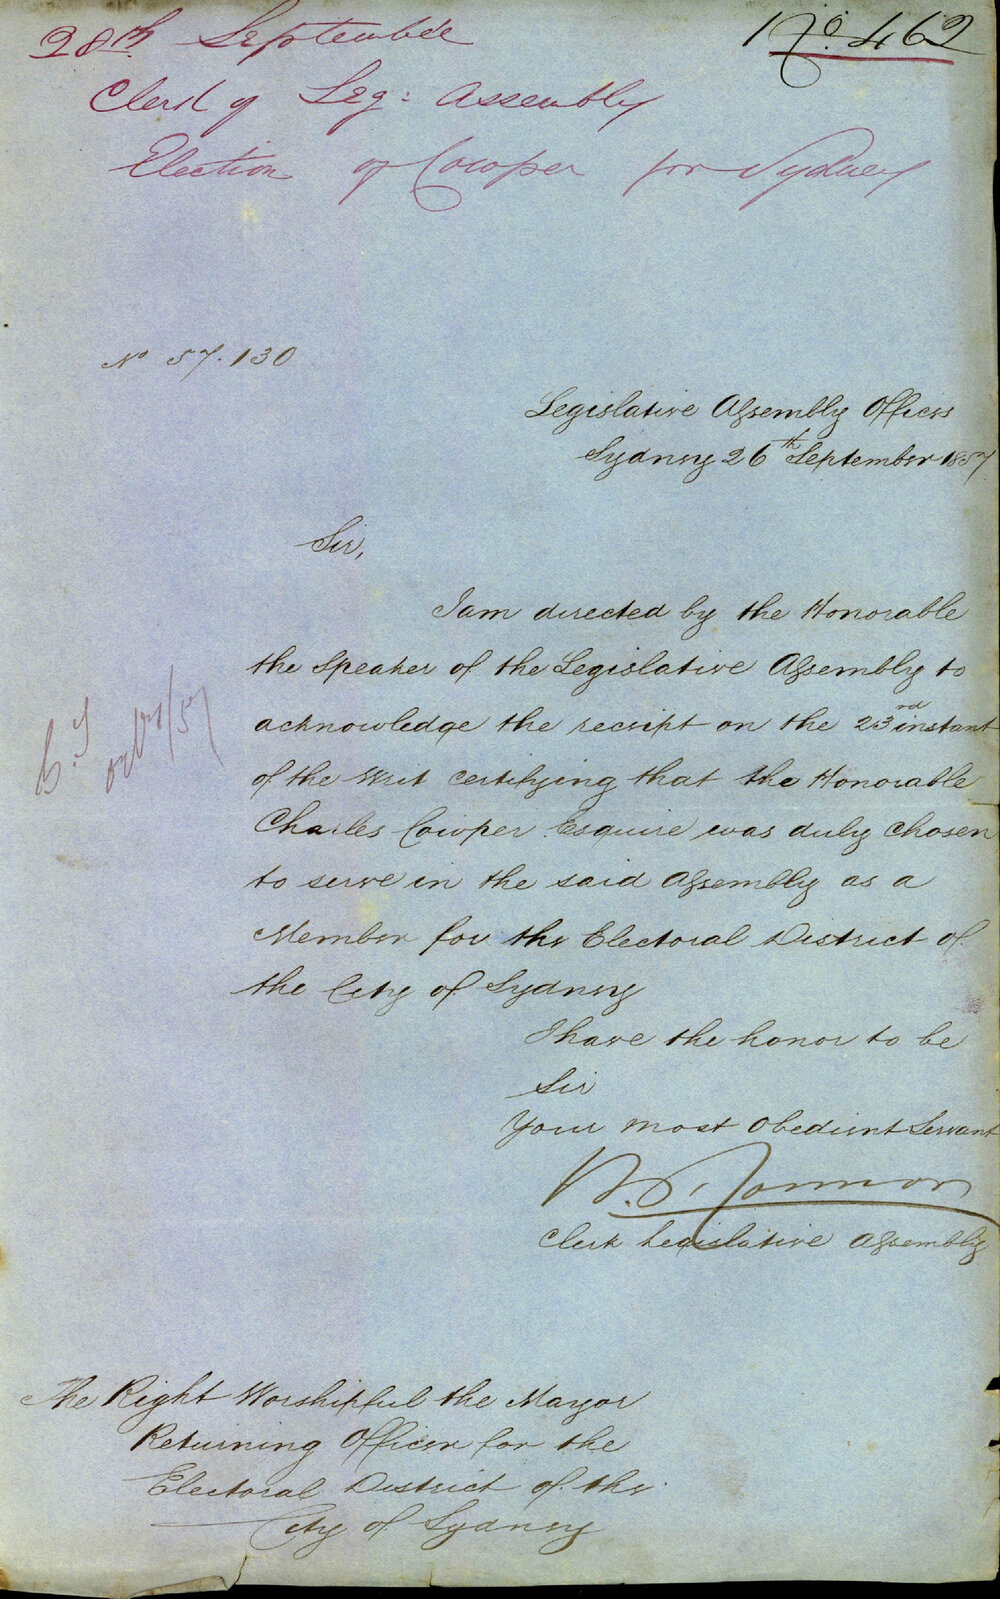 28th September
No. 462
Clerk of Leg: Assembly
Election of Cowper for Sydney
No 57.130
Legislative Assembly Offices
Sydney 26th September 1857
Sir,
I am directed by the Honorable
the Speaker of the Legislative Assembly to
acknowledge the receipt on the 23rd instant
of the Writ certifying that the Honorable
Charles Cowper Esquire was duly chosen
to serve in the said Assembly as a
Member for the Electoral District of
the City of Sydney
I have the honor to be
Sir
Your most obedient Servant
Clerk Legislative Assembly
The Right Worshipful the Mayor
Returning Officer for the
Electoral District of the
City of Sydney